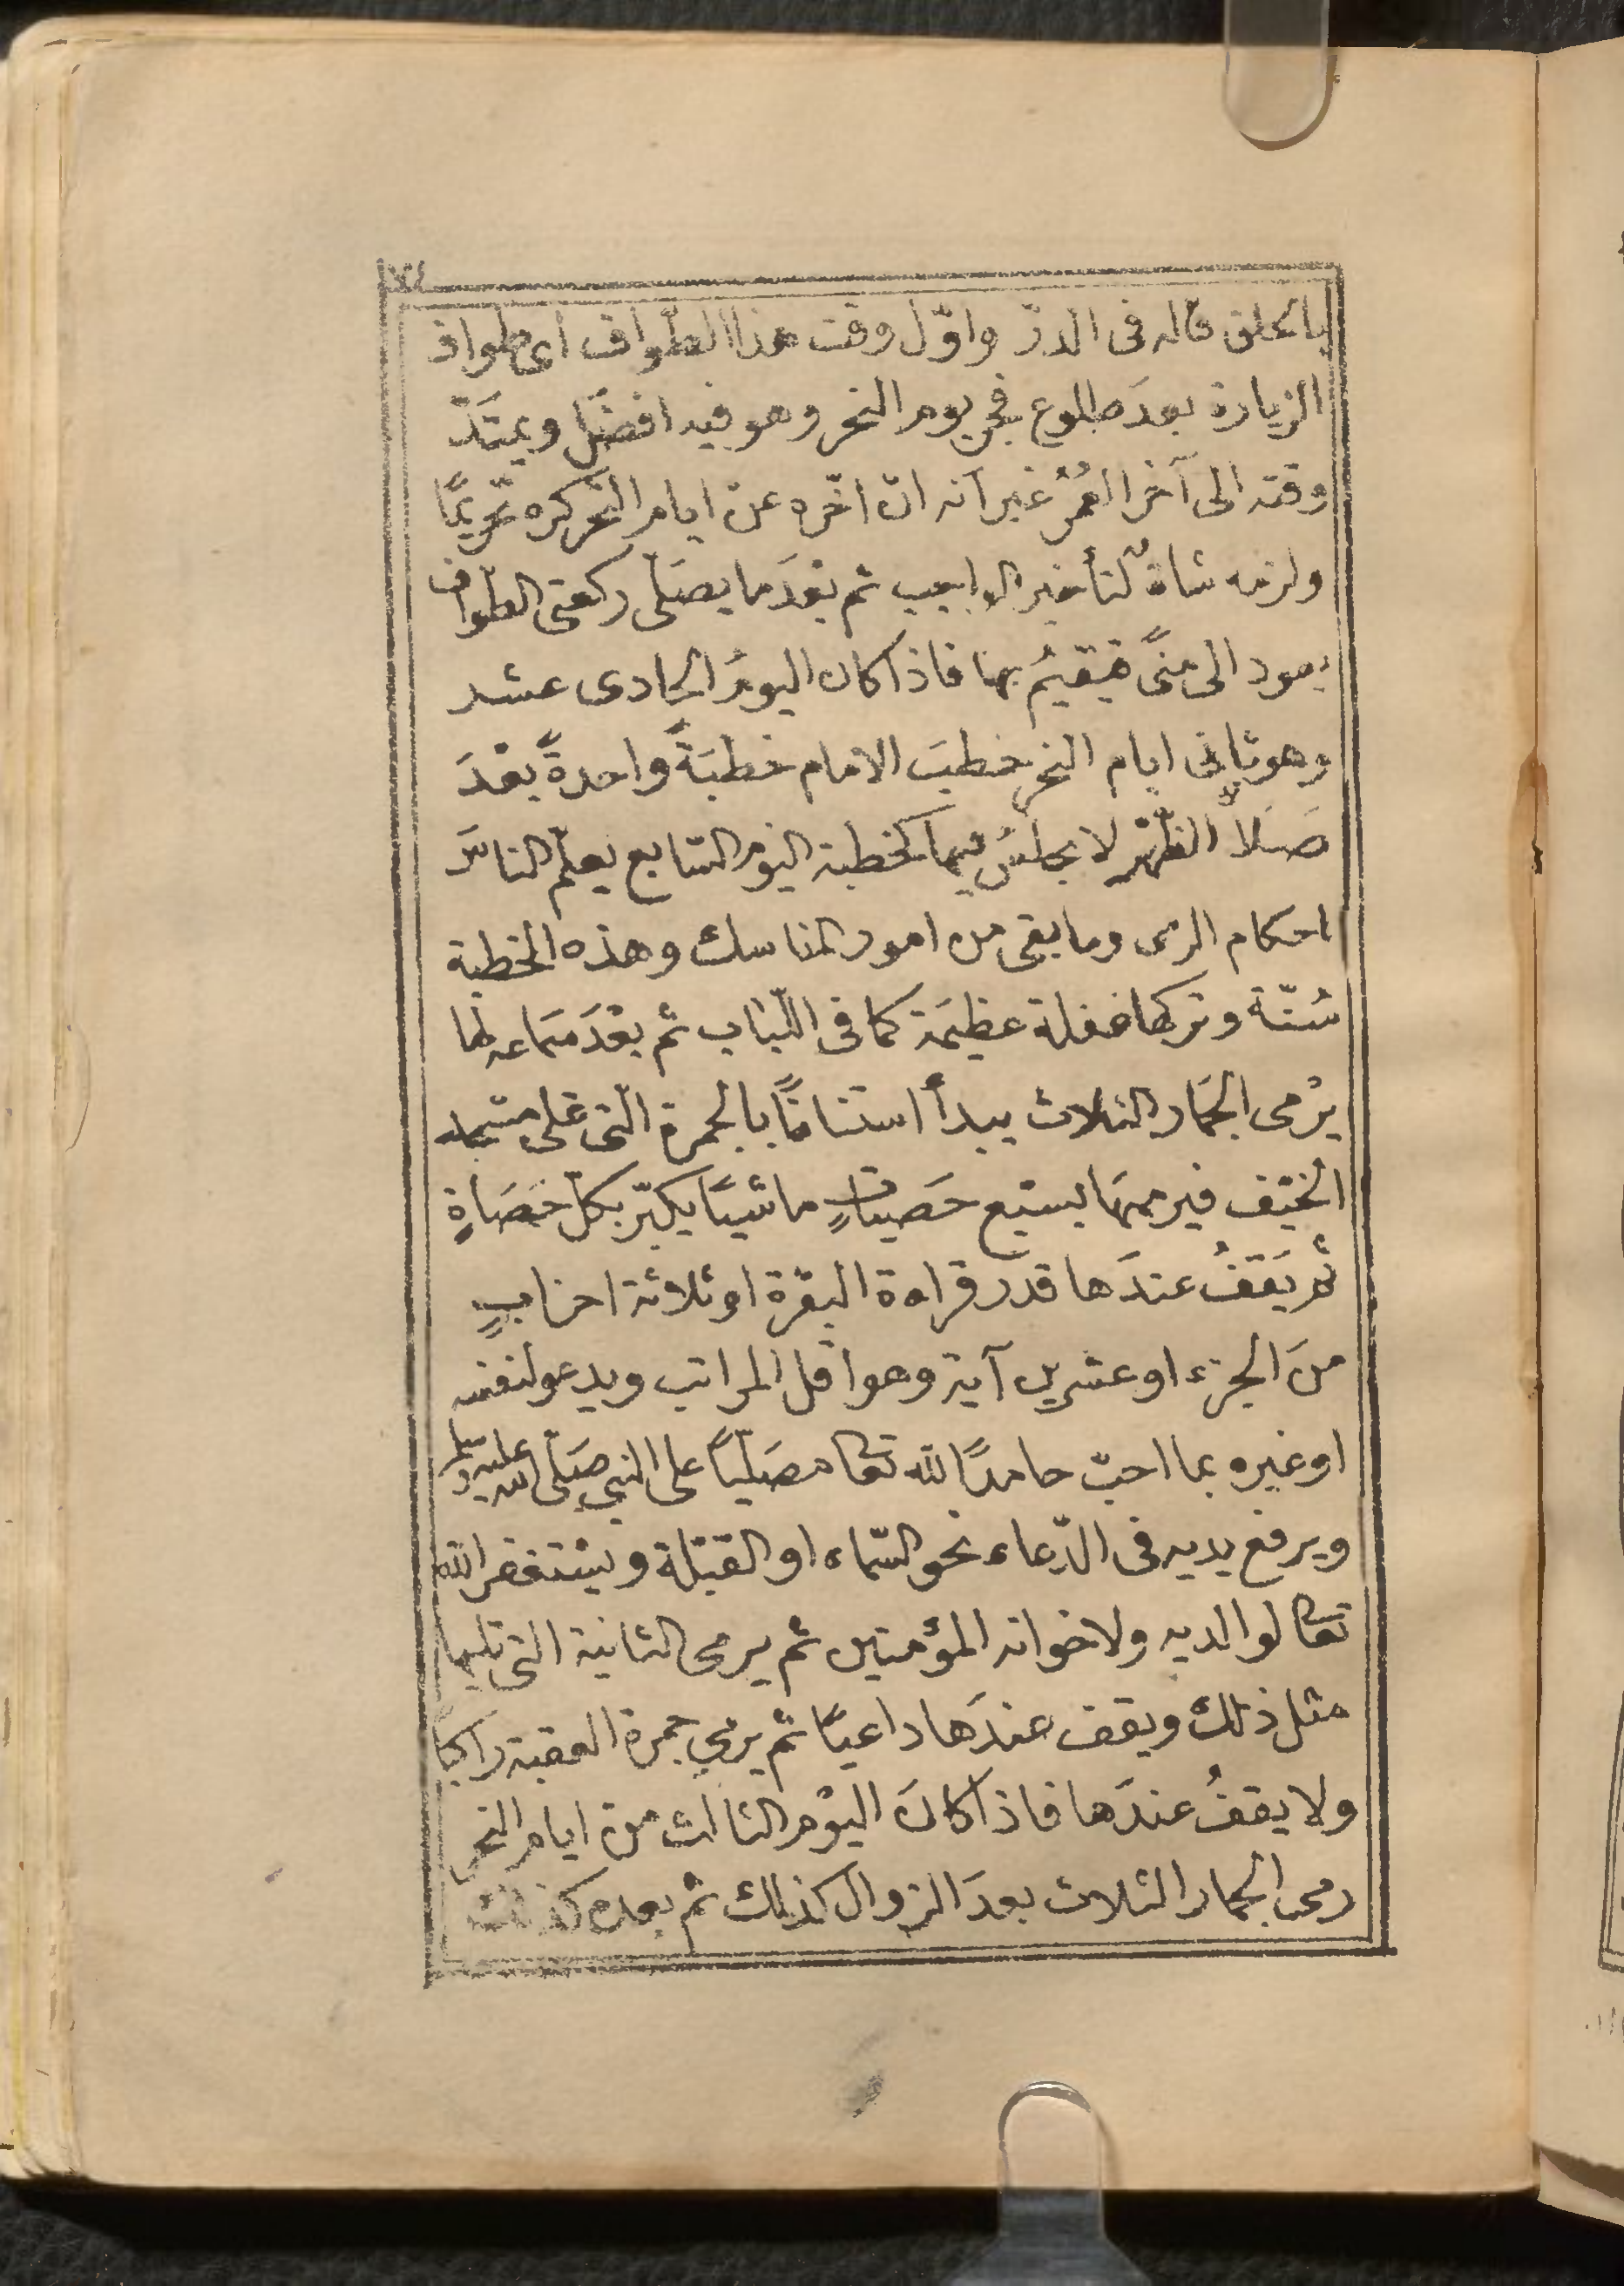 ٧٤
بالحلق قاله فى الدرّ واوّل وقت هذا الطّواف اى طواف
الزيارة بعدَ طلوع فجر يوم النحر وهو فيه افضل ويمتدّ
وقته الى آخر العُمُر غير انه ان اخّره عن ايام النحر كره تحريمًا
ولزمه شاةٌ لتأخير الواجب ثم بعْدَ ما يصلّى ركعتى الطّواف
يعود الى منىً فيقيمُ بها فاذا كان اليومُ الحادى عشر
وهو ثانى ايام النحر خطبَ الامام خطبَةً واحدةً بعْدَ
صَلاة الظّهْر لا يجلسُ فيها كخطبة اليوم السّابع يعلّم الناسَ
احكام الرمى وما بقى من امور المناسك وهذه الخطبة
سُنّة وتركها غفلة عظيمَة كما فى اللّباب ثم بعْدَ سَماعه لها
يرْمى الجمَار الثلاث يبدأ استنانًا بالجمرة الّتى على مسجد
الخيْف فيرميهَا بسَبْع حَصياتٍ ماشيًا يكبّر بكلّ حَصَاةٍ
ثم يَقفُ عندَها قدر قراءة البقرة او ثلاثة احزابٍ
منَ الجزء او عشرين آية وهو اقل المراتب ويدعو لنفسه
او غيره بما احبّ حامدًا لله تعا مصَلّيًا على النبى صَلّى الله عليه وسلم
ويرفع يديه فى الدّعاء نحو السّماء او القبْلة ويسْتغفر الله
تعا لوالديه ولاخوانه المؤمنين ثم يرمى الثانية التى تليها
مثل ذلك ويقف عندَها داعيًا ثم يرمي جمرة العقبة راكبا
ولا يقفُ عندَها فاذا كانَ اليوْم الثالث من ايام النحر
رمى الجمار الثلاث بعدَ الزوال كذلك ثم بعده كذلك